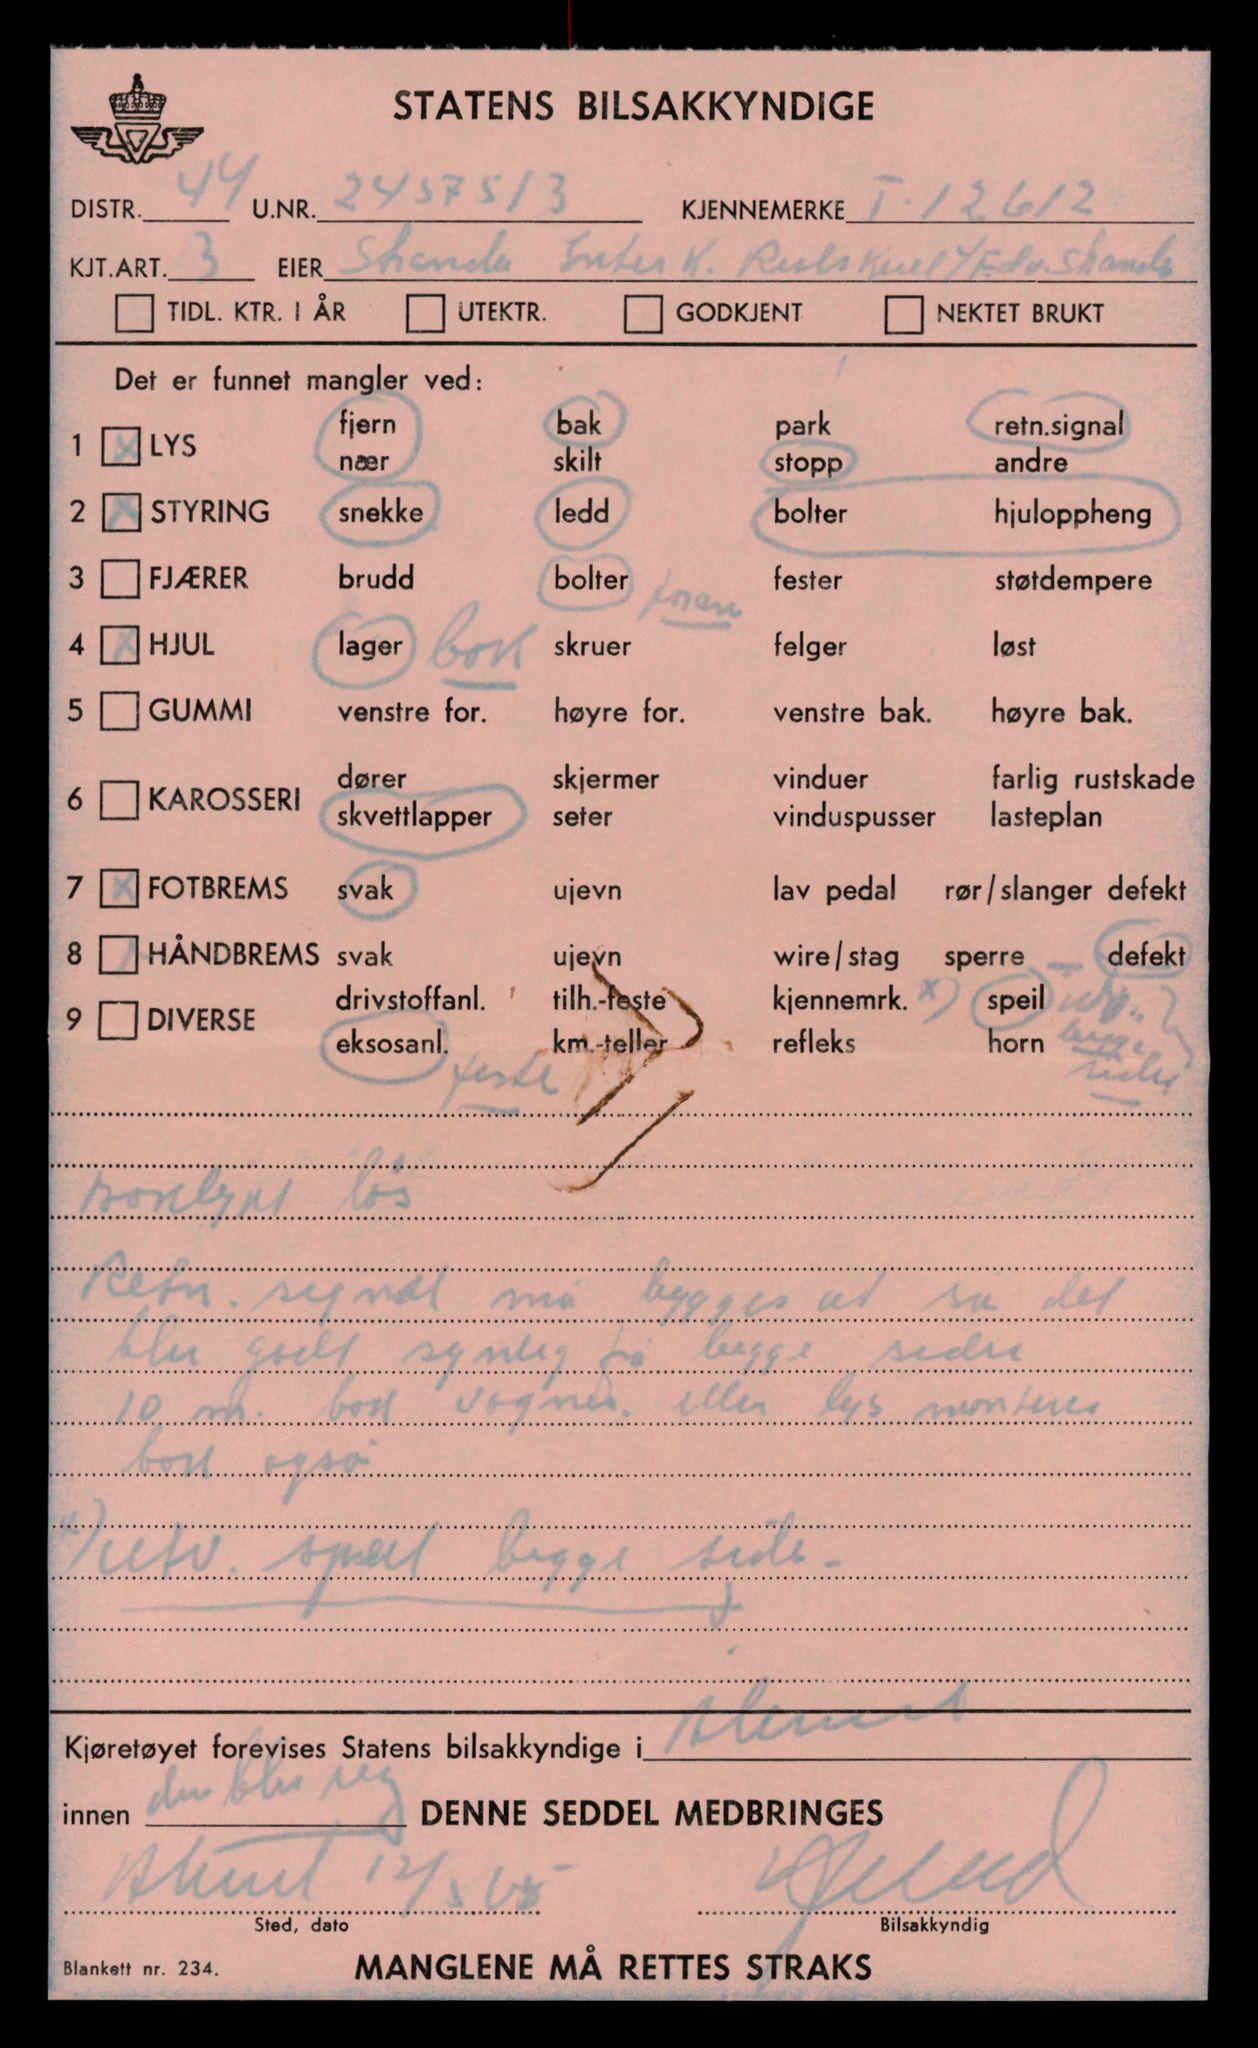 STATENS BILSAKKYNDIGE
DISTR. 44 U.NR. 2457513 KJENNEMERKE T-12612
KJT.ART. 3 EIER Stranda Inter K. Realskule v/Edv. Stranda
TIDL. KTR. I ÅR UTEKTR. GODKJENT NEKTET BRUKT
Det er funnet mangler ved:
fjern bak park retn.signal
1 x LYS
nær skilt stopp andre
2 x STYRING snekke ledd bolter hjuloppheng
3 FJÆRER brudd bolter foran fester støtdempere
4 x HJUL lager bak skruer felger løst
5 GUMMI venstre for. høyre for. venstre bak. høyre bak.
dører skjermer vinduer farlig rustskade
6 KAROSSERI
skvettlapper seter vinduspusser lasteplan
7 x FOTBREMS svak ujevn lav pedal rør/slanger defekt
8 HÅNDBREMS svak ujevn wire/stag sperre defekt
drivstoffanl. tilh.-feste kjennemrk. x) speil utv.
9 DIVERSE
eksosanl. feste km.-teller refleks horn begge sider
løs
Retn. signal må bygges ut så det
blir godt synleg på begge sider
10 m. bak vogna. eller lys monteres
bak også
x) utv. speil begge sider
Kjøretøyet forevises Statens bilsakkyndige i Ålesund
innen den blir reg DENNE SEDDEL MEDBRINGES
Ålesund 12/5 65
Sted, dato Bilsakkyndig
Blankett nr. 234. MANGLENE MÅ RETTES STRAKS